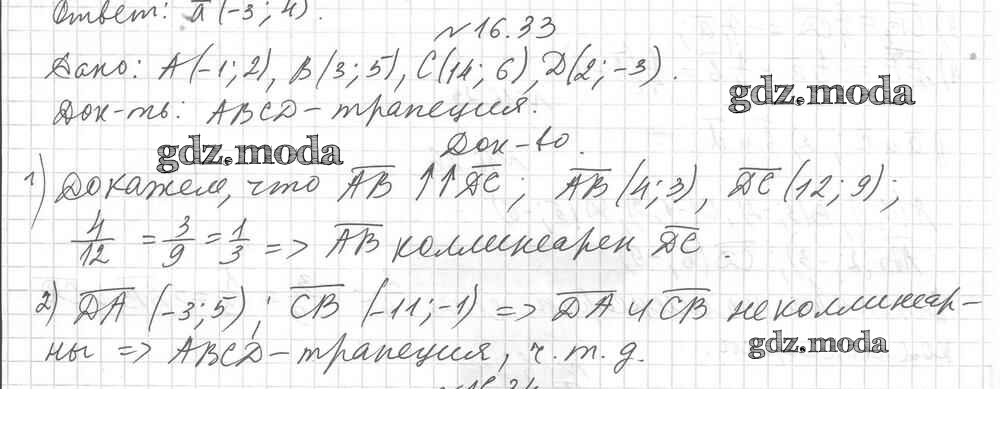 Ответ: a̅ (-3; 4).
№16.33
Дано: A(-1; 2), B(3; 5), C(14; 6), D(2; -3).
gdz.moda
Док-ть: ABCD - трапеция.
gdz.moda
Док-во.
1) Докажем, что A̅B̅ ↑↑ D̅C̅; A̅B̅ (4; 3), D̅C̅ (12; 9);
4/12 = 3/9 = 1/3 => A̅B̅ коллинеарен D̅C̅.
2) D̅A̅ (-3; 5); C̅B̅ (-11; -1) => D̅A̅ и C̅B̅ неколлинеар-
ны => ABCD - трапеция, ч.т.д.
gdz.moda